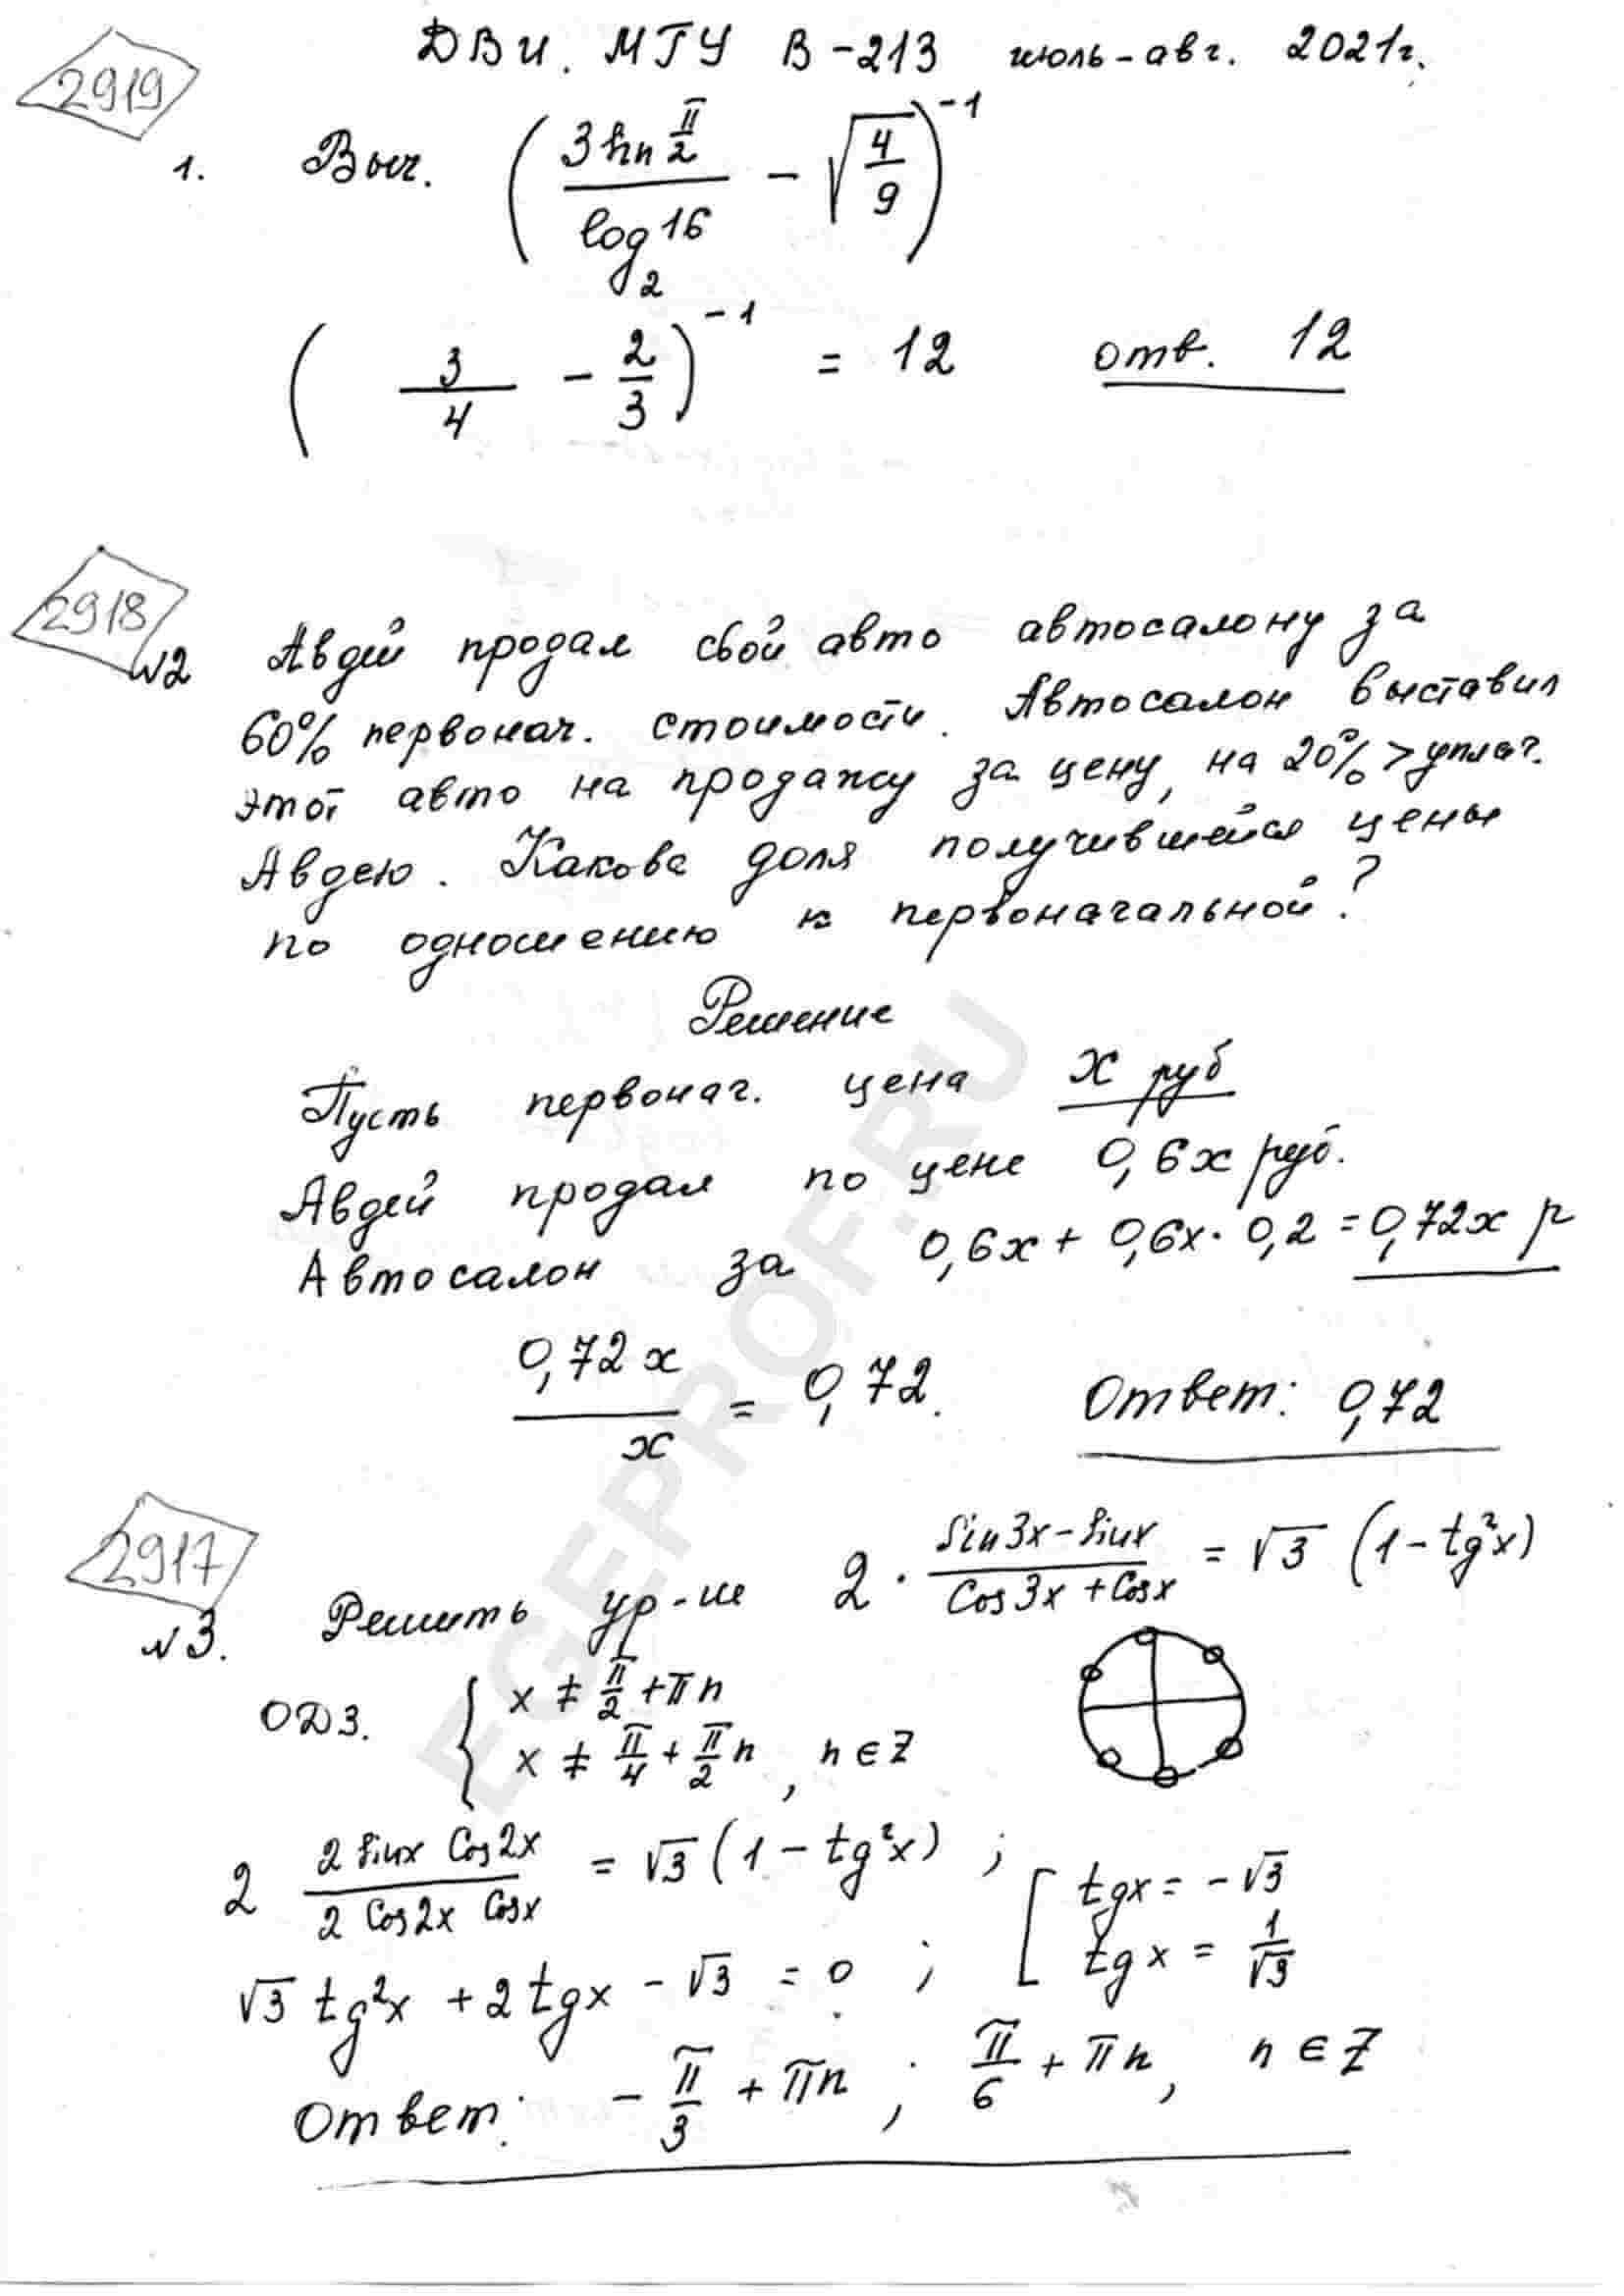 ДВИ. МГУ В-213 июль-авг. 2021г.
2919
1. Выч. (3 sin π/2 / log₂16 - √(4/9))⁻¹
(3/4 - 2/3)⁻¹ = 12 отв. 12
2918
№2 Авдей продал свой авто автосалону за
60% первонач. стоимости. Автосалон выставил
этот авто на продажу за цену, на 20% > уплач.
Авдею. Какова доля получившейся цены
по одношению к первоначальной?
Решение
Пусть первонач. цена x руб
Авдей продал по цене 0,6x руб.
Автосалон за 0,6x + 0,6x · 0,2 = 0,72x р
0,72x / x = 0,72. Ответ: 0,72
2917
№3. Решить ур-ие 2 · (sin3x - sinx)/(cos3x + cosx) = √3 (1 - tg²x)
ОДЗ. { x ≠ π/2 + πn
x ≠ π/4 + π/2 n, n ∈ Z
2 (2 sinx cos2x)/(2 cos2x cosx) = √3 (1 - tg²x) ;
√3 tg²x + 2 tgx - √3 = 0 ; [ tgx = -√3
tgx = 1/√3
Ответ: -π/3 + πn ; π/6 + πn, n ∈ Z
EGEPROF.RU